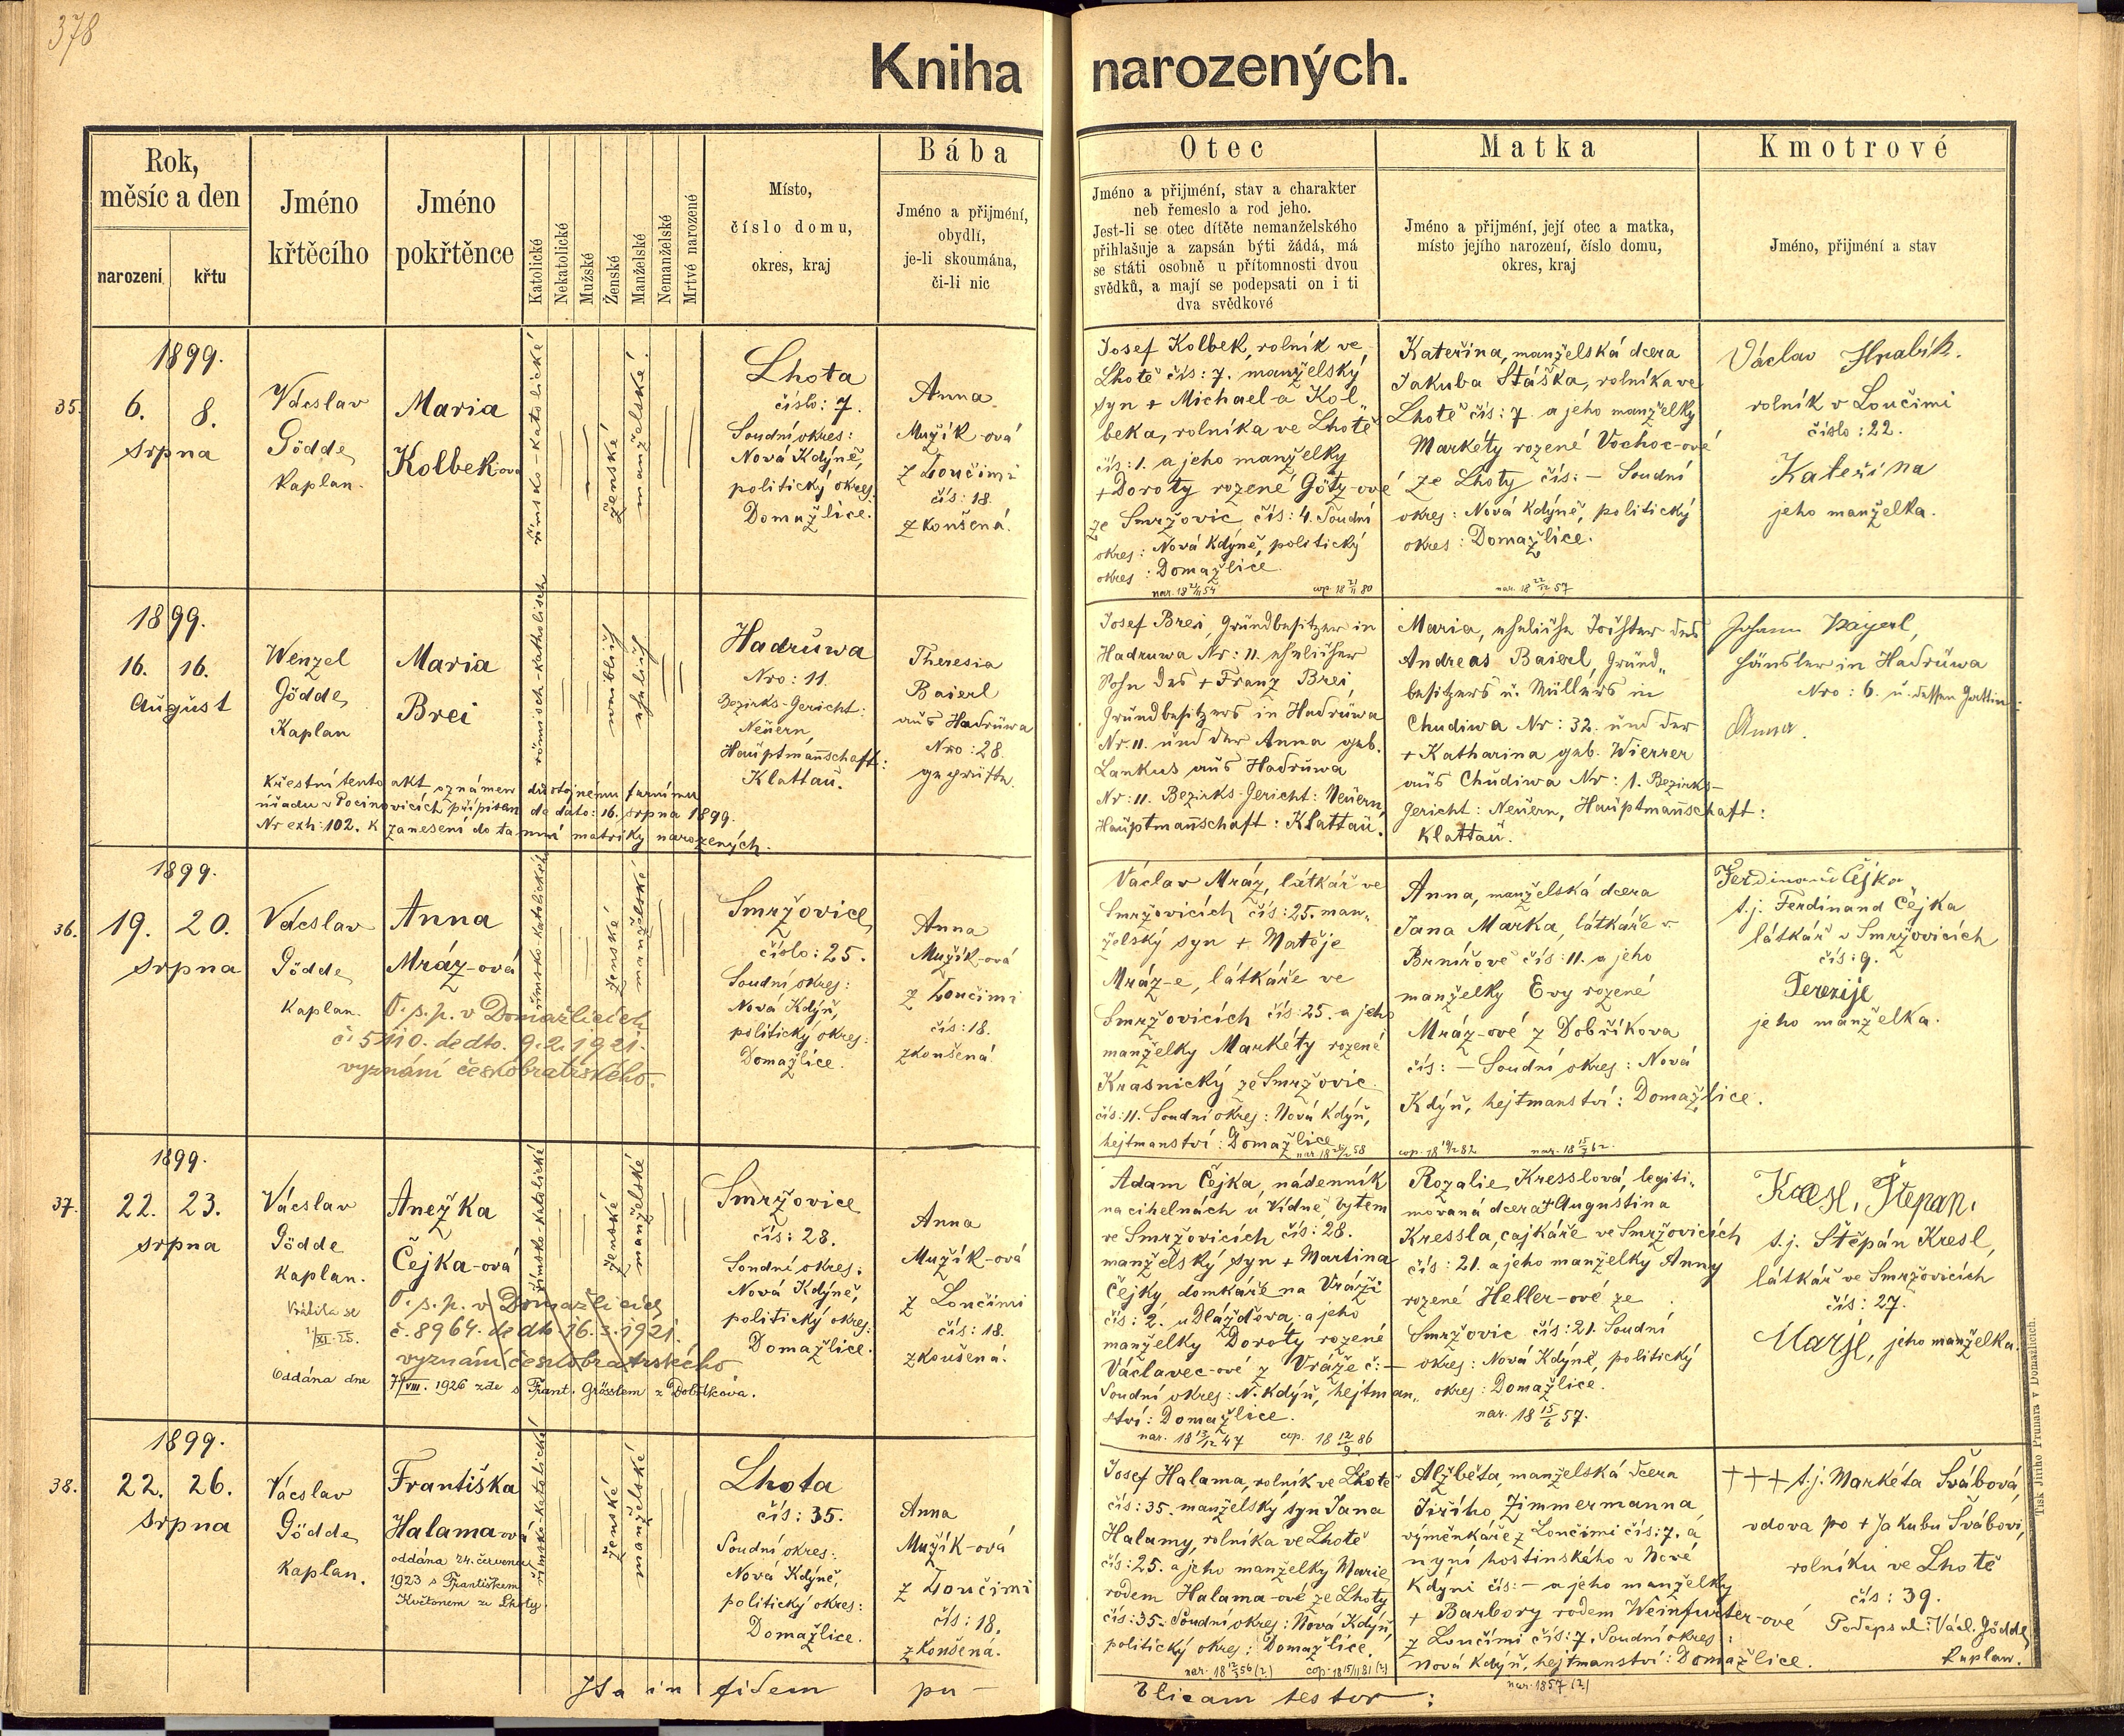 378
Kniha narozených.
Rok,
měsíc a den
narození
křtu
Jméno
křtěcího
Jméno
pokřtěnce
Katolické
Nekatolické
Mužské
Ženské
Manželské
Nemanželské
Mrtvé narozené
Místo,
číslo domu,
okres, kraj
Bába
Jméno a přijmení,
obydlí,
je-li skoumána,
či-li nic
Otec
Jméno a přijmení, stav a charakter
neb řemeslo a rod jeho.
Jest-li se otec dítěte nemanželského
přihlašuje a zapsán býti žádá, má
se státi osobně u přítomnosti dvou
svědků, a mají se podepsati on i ti
dva svědkové
Matka
Jméno a přijmení, její otec a matka,
místo jejího narození, číslo domu,
okres, kraj
Kmotrové
Jméno, přijmení a stav
35.
1899.
6. 8.
srpna
Václav
Gödde
Kaplan.
Maria
Kolbek-ová
římsko-katolické
ženské
manželské.
Lhota
číslo: 7.
Soudní okres:
Nová Kdýně,
politický okres:
Domažlice.
Anna
Mužík-ová
z Loučimi
čís: 18.
zkoušená.
Josef Kolbek, rolník ve
Lhotě čís: 7. manželský
syn + Michael-a Kol„
beka, rolníka ve Lhotě
čís: 1. a jeho manželky
+ Doroty rozené Götz-ové
ze Smržovic čís: 4. Soudní
okres: Nová Kdýně, politický
okres: Domažlice.
nar. 18 21/11 54 cop. 18 21/11 80
Kateřina, manželská dcera
Jakuba Stáška, rolníka ve
Lhotě čís: 7. a jeho manželky
Markéty rozené Vochoc-ové
ze Lhoty čís: – Soudní
okres: Nová Kdýně, politický
okres: Domažlice.
nar. 18 22/12 57
Václav Hrabík.
rolník v Loučimi
číslo: 22.
Kateřina
jeho manželka.
1899.
16. 16.
August
Wenzel
Gödde,
Kaplan
Maria
Brei
römisch-katholisch
weiblich
ehelich
Hadruwa
Nro: 11.
Bezirks-Gericht:
Neuern,
Hauptmannschaft:
Klattau.
Theresia
Baierl
aus Hadruwa
Nro: 28
geprüfte.
Křestní tento akt oznámen důstojnému farnímu
úřadu v Pocinovicích přípisem de dato: 16. srpna 1899.
Nr exh: 102. k zanesení do tamní matriky narozených.
Josef Brei, Grundbesitzer in
Hadruwa Nr: 11. ehelicher
Sohn des + Franz Brei,
Grundbesitzers in Hadruwa
Nr. 11. und der Anna geb.
Lankus aus Hadruwa
Nr: 11. Bezirks-Gericht: Neuern,
Hauptmannschaft: Klattau.
Maria, eheliche Tochter des
Andreas Baierl, Grund„
besitzers u. Müllers in
Chudiwa Nr: 32. und der
+ Katharina geb. Wierrer
aus Chudiwa Nr: 1. Bezirks-
Gericht: Neuern, Hauptmannschaft:
Klattau.
Johann Bayerl,
Häusler in Hadruwa
Nro: 6. u. dessen Gattin:
Anna.
36.
1899.
19. 20.
srpna
Václav
Gödde
Kaplan.
Anna
Mráz-ová
O. s. p. v Domažlicích
č. 5110. de dto. 9. 2. 1921.
vyznání českobratrského.
římsko-katolické
ženské
manželské
Smržovice
číslo: 25.
Soudní okres:
Nová Kdýň,
politický okres:
Domažlice.
Anna
Mužík-ová
z Loučimi
čís: 18.
zkoušená.
Václav Mráz, látkář ve
Smržovicích čís: 25. man„
želský syn + Matěje
Mráz-e, látkáře ve
Smržovicích čís: 25. a jeho
manželky Markéty rozené
Krasnický ze Smržovic
čís: 11. Soudní okres: Nová Kdýň,
hejtmanství: Domažlice
Anna, manželská dcera
Jana Marka, látkáře v
Brnířově čís: 11. a jeho
manželky Evy rozené
Mráz-ové z Dobříkova
čís: – Soudní okres: Nová
Kdýň, hejtmanství: Domažlice.
Ferdinand Čejka
t. j. Ferdinand Čejka
látkář v Smržovicích
čís: 9.
Terezije
jeho manželka.
37.
1899.
22. 23.
srpna
Václav
Gödde
Kaplan.
Vrátila se
1/XI. 25.
Anežka
Čejka-ová
O. s. p. v Domažlicích
č. 8964. de dto 16. 3. 1921.
vyznání českobratrského
Oddána dne 7/VIII. 1926 zde s Frant. Grösslem z Dobříkova.
římsko-katolické
ženské
manželské
Smržovice
čís: 28.
Soudní okres:
Nová Kdýně,
politický okres:
Domažlice.
Anna
Mužík-ová
z Loučimi
čís: 18.
zkoušená.
Adam Čejka, nádenník
na cihelnách u Vídně, bytem
ve Smržovicích čís: 28.
manželský syn + Martina
Čejky, domkáře na Vráži
čís: 2. u Dlážďova a jeho
manželky Doroty rozené
Václavec-ové z Vráže č: –
Soudní okres: N. Kdýň, hejtman„
ství: Domažlice.
nar. 18 13/12 47 cop. 18 12/9 86
Rozalie Kresslová, legiti„
movaná dcera + Augustina
Kressla, cajkáře ve Smržovicích
čís: 21. a jeho manželky Anny
rozené Heller-ové ze
Smržovic čís: 21. Soudní
okres: Nová Kdýně, politický
okres: Domažlice.
nar. 18 15/6 57.
Kresl, Štěpan,
t. j. Štěpán Kresl,
látkář ve Smržovicích
čís: 27.
Marje, jeho manželka.
38.
1899.
22. 26.
srpna
Václav
Gödde
Kaplan.
Františka
Halama-ová
oddána 24. července
1923 s Františkem
Květonem ze Lhoty.
římsko-katolické
ženské
manželské
Lhota
čís: 35.
Soudní okres:
Nová Kdýně,
politický okres:
Domažlice.
Anna
Mužík-ová
z Loučimi
čís: 18.
zkoušená.
Josef Halama, rolník ve Lhotě
čís: 35. manželský syn Jana
Halamy, rolníka ve Lhotě
čís: 25. a jeho manželky Marie
rodem Halama-ové ze Lhoty
čís: 35. Soudní okres: Nová Kdýň,
politický okres: Domažlice.
Alžběta, manželská dcera
Jiřího Zimmermanna
výměnkáře z Loučimi čís: 7. a
nyní hostinského v Nové
Kdýni čís: – a jeho manželky
+ Barbory rodem Weinfurter-ové
z Loučimi čís: 7. Soudní okres:
Nová Kdýň, hejtmanství: Domažlice.
nar. 1857 (2)
+++ t. j. Markéta Švábová,
vdova po + Jakubu Švábovi,
rolníku ve Lhotě
čís: 39.
Podepsal: Václ. Gödde,
Kaplan.
Ita in fidem pu–
blicam testor:
Tisk Jiřího Prunara v Domažlicích.